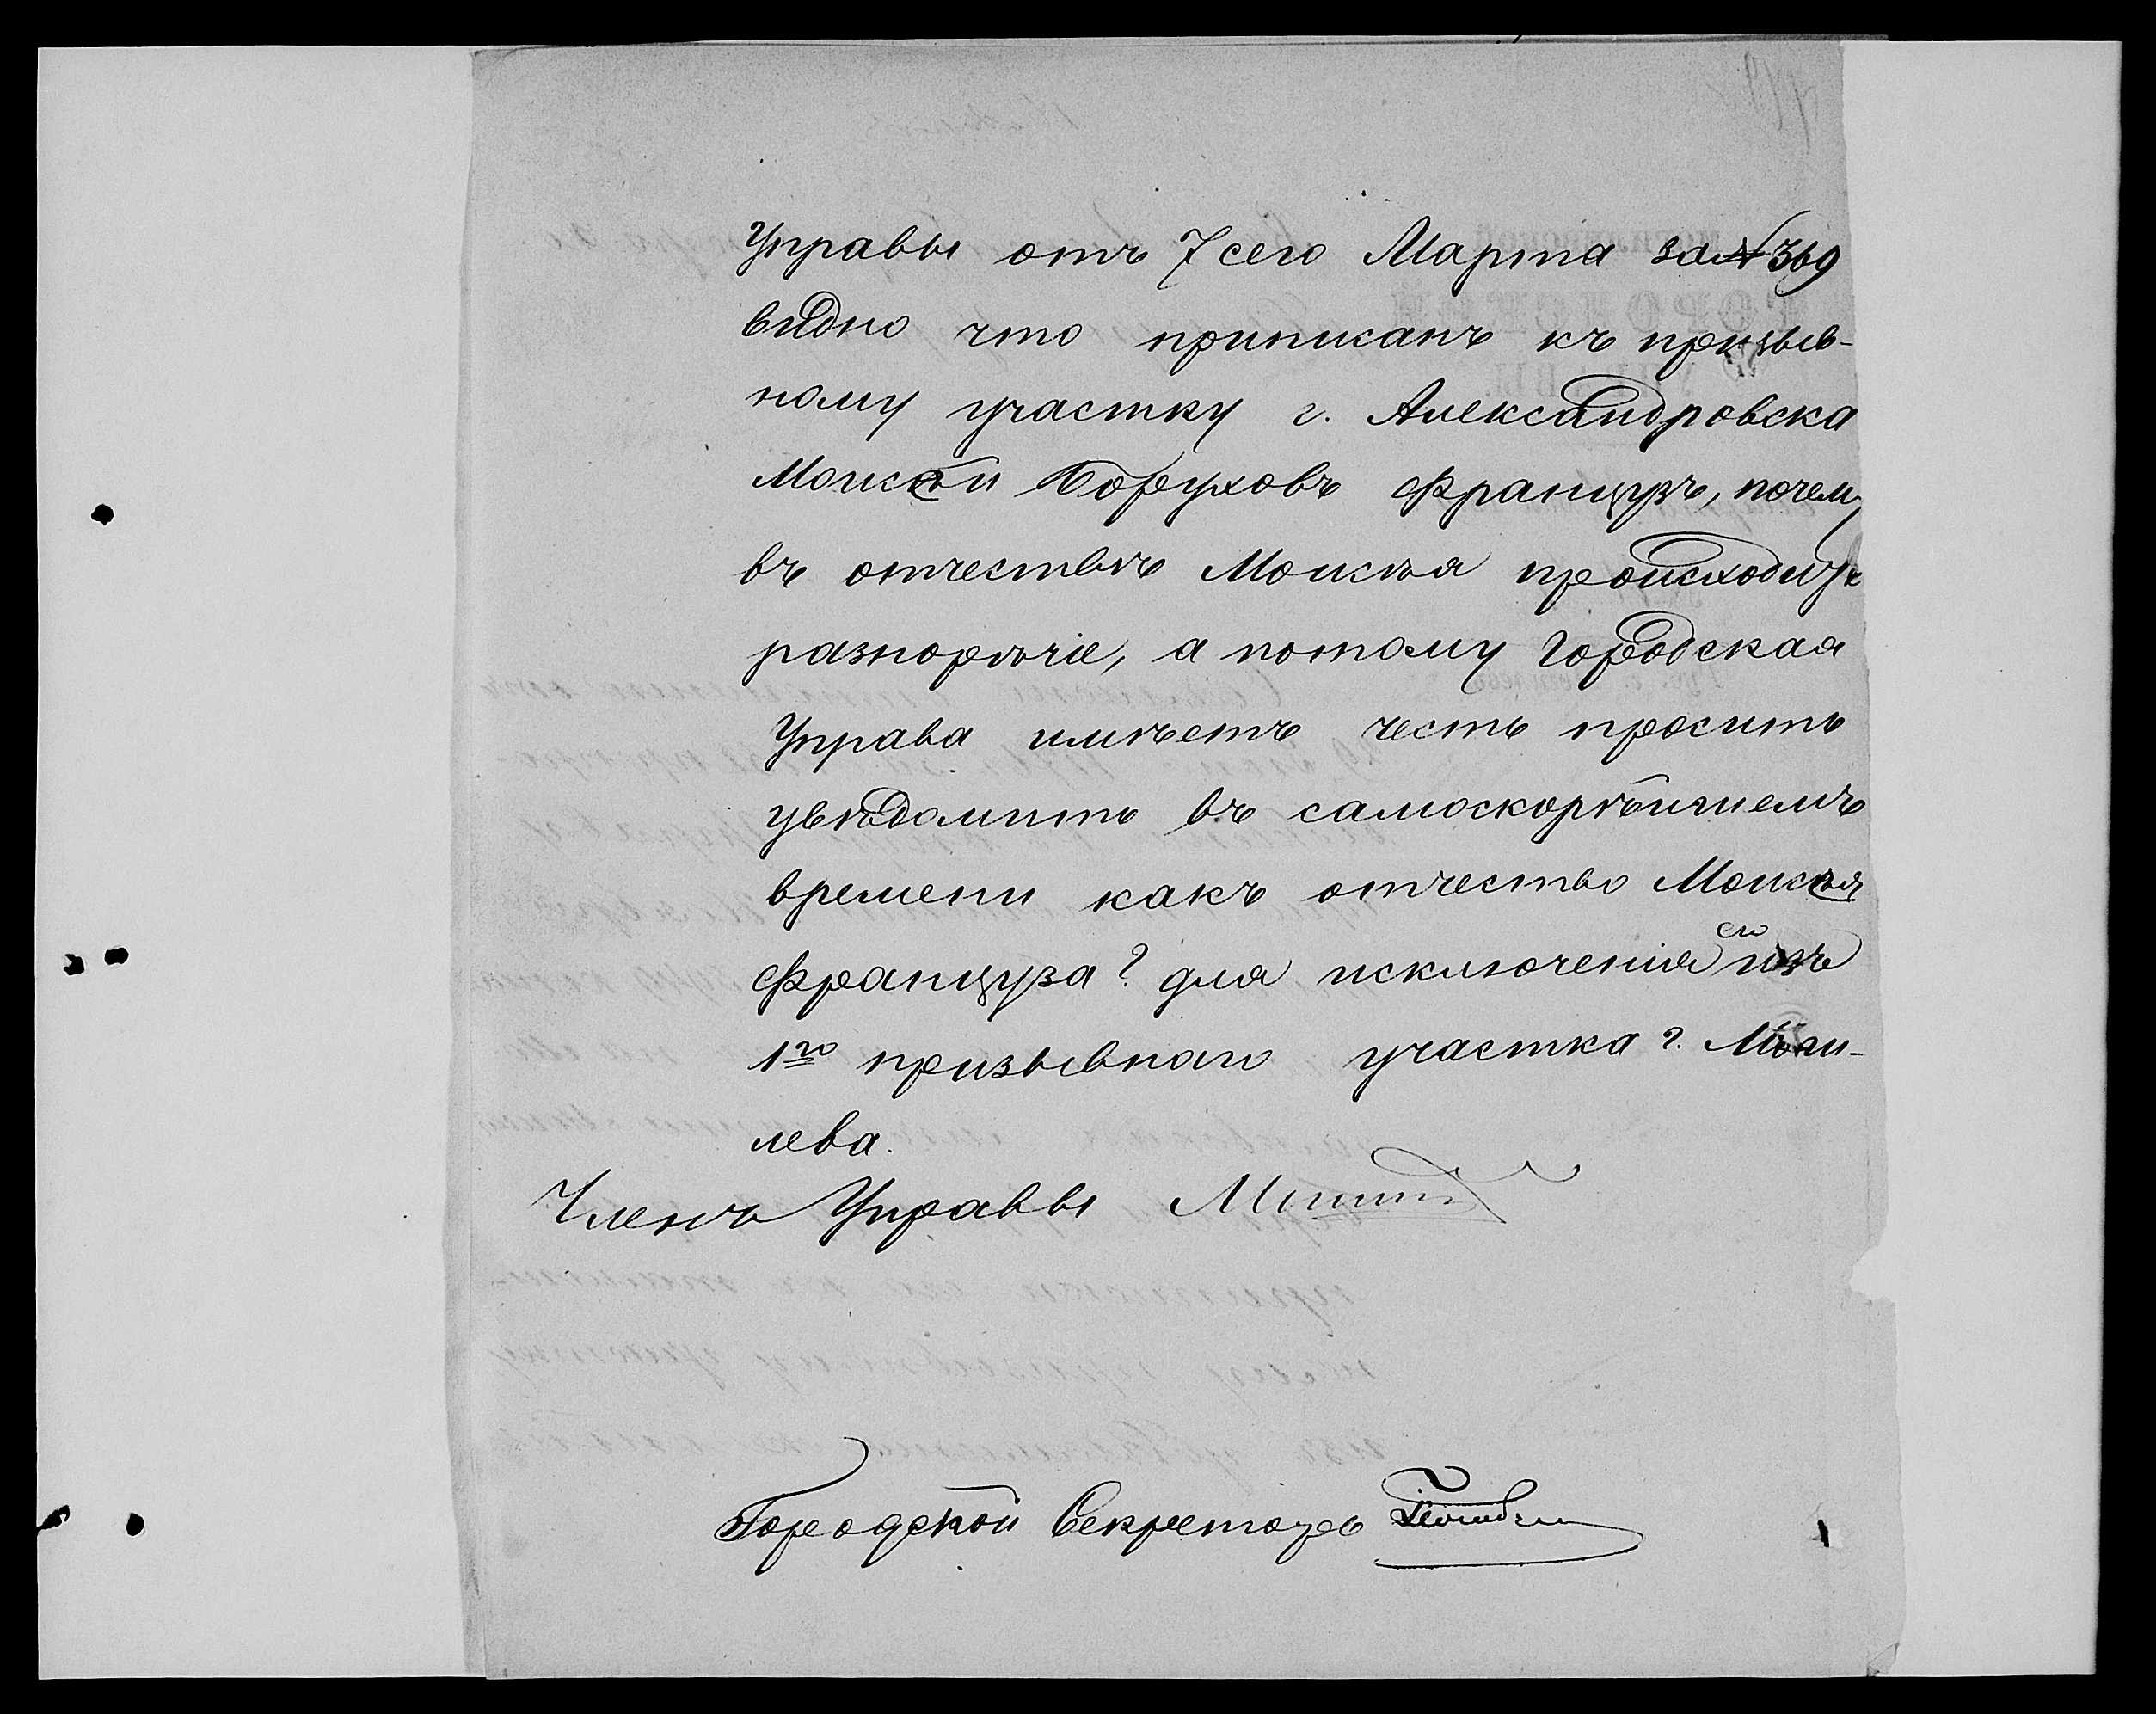 Управы отъ 7 сего Марта за № 369
видно что приписанъ къ призыв-
ному участку г. Александровска
Моисей Боруховъ Французъ, почему
въ отчествѣ Моисѣя происходитъ
разнорѣчіе, а потому Городская
Управа имѣетъ честь просить
увѣдомить въ самоскорѣйшемъ
времени какъ отчество Моисѣя
Француза? для исключенія его изъ
1го призывнаго участка г. Моги-
лева.
Членъ Управы
Городской Секретарь